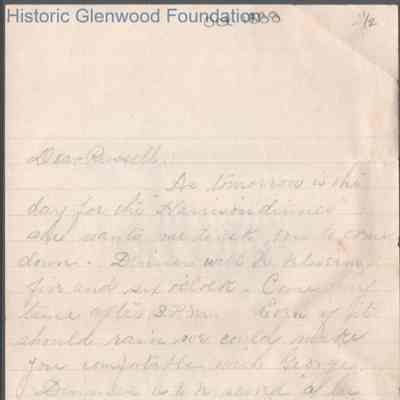 Historic Glenwood Foundation
Oct 1888
Dear Russell,
As tomorrow is the
day for the Harrison dinner
she wants me to ask you to come
down. Dinner will be between
five and six oclock. Come any
time after 3 P.M. Even if it
should rain we could make
you comfortable with George.
Dinner is to be served a la